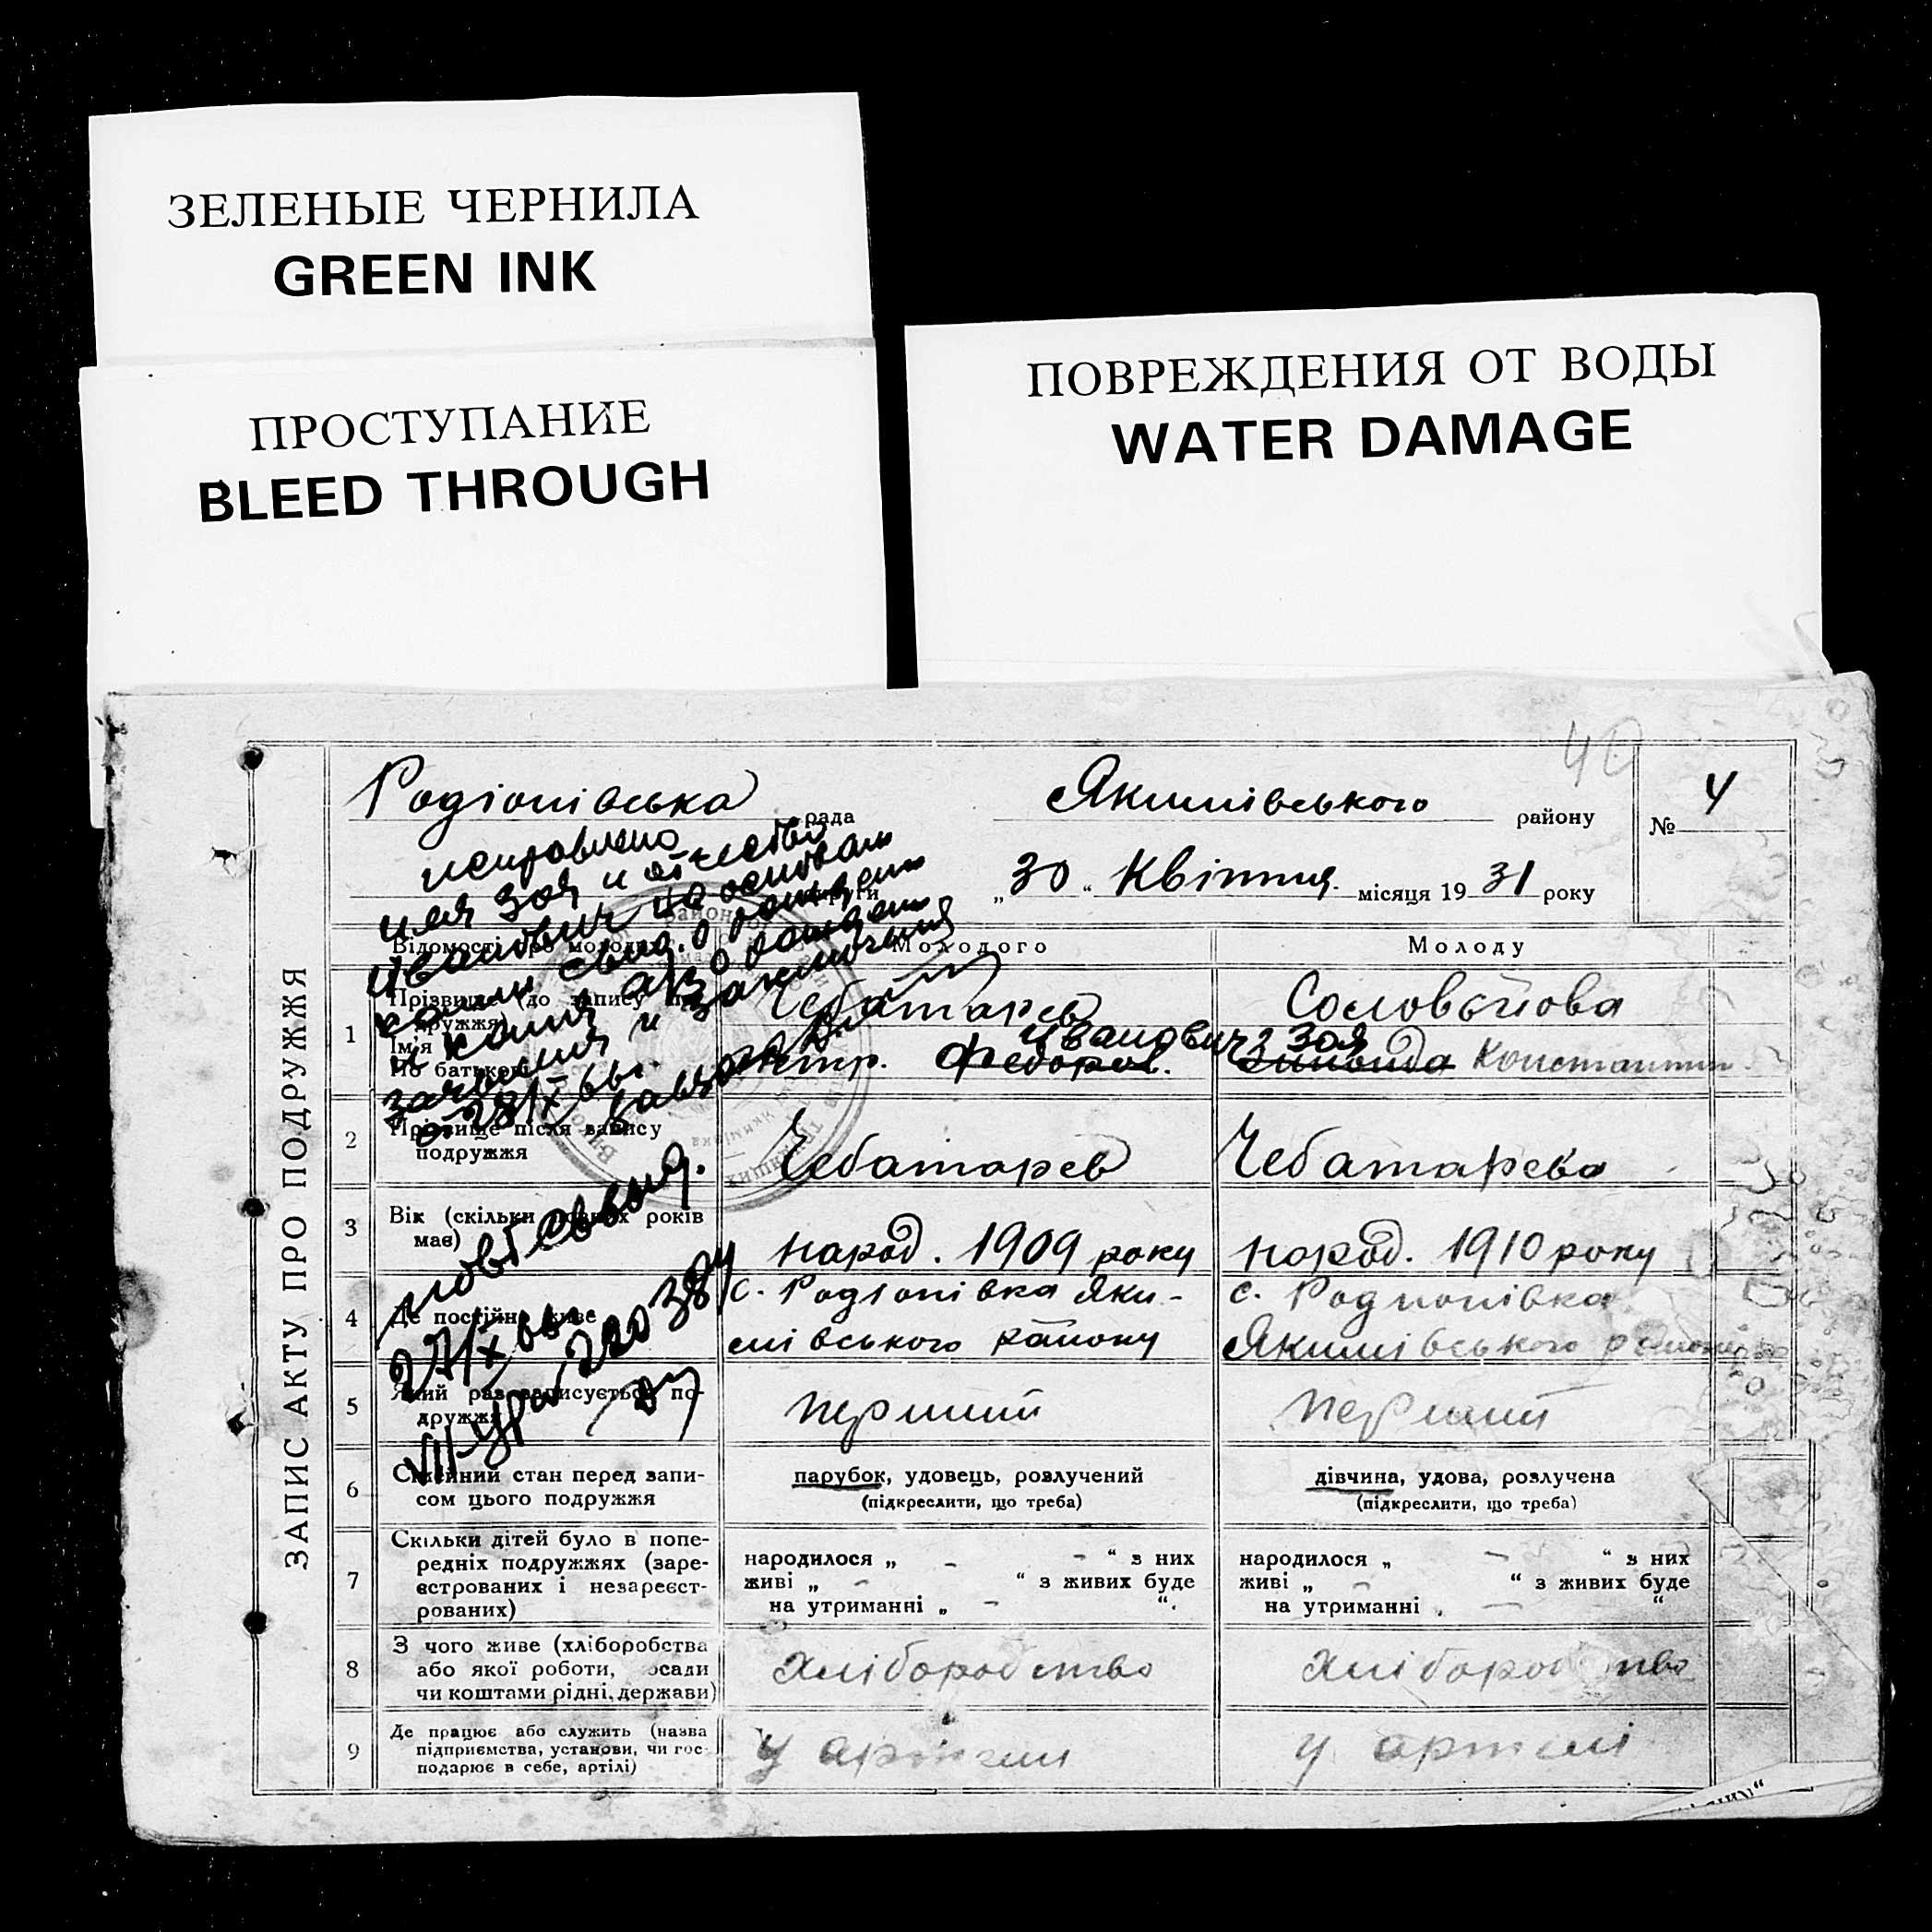 ЗЕЛЕНЫЕ ЧЕРНИЛА
GREEN INK
ПРОСТУПАНИЕ
BLEED THROUGH
ПОВРЕЖДЕНИЯ ОТ ВОДЫ
WATER DAMAGE
40
ЗАПИС АКТУ ПРО ПОДРУЖЖЯ
Родіонівська рада
Якимівського району
№ 4
„30“ Квітня місяця 1931 року
округи
исправлено
имя Зоя и отчество
Иванович на основании
копии свид. о рождении
и копия а/з о рождении
и заключения
от 28/IX 66г.
27/IX 66г.
Відомості про молодих
Молодого
Молоду
1
Прізвище (до запису подружжя)
Ім'я
По батькові
Чеботарев
Петр. Федоров.
Иванович
Соловьйова
Зоя
Зинаида Константин.
2
Прізвище після запису
подружжя
Чебатарев
Чебатарева
3
Вік (скільки повних років
має)
народ. 1909 року
народ. 1910 року
4
Де постійно живе
с. Родіонівка Яки-
мівського району
с. Родионівка
Якимівського району
5
Який раз записується по-
дружжя
перший
перший
6
Сімейний стан перед запи-
сом цього подружжя
парубок, удовець, розлучений
(підкреслити, що треба)
дівчина, удова, розлучена
(підкреслити, що треба)
7
Скільки дітей було в попе-
редніх подружжях (заре-
єстрованих і незареєст-
рованих)
народилося „ - - “ з них
живі „ - “ з живих буде
на утриманні „ - “.
народилося „ - “ з них
живі „ - “ з живих буде
на утриманні „ - “
8
З чого живе (хліборобства
або якої роботи, посади
чи коштами рідні, держави)
хліборобство
хліборобство
9
Де працює або служить (назва
підприємства, установи, чи гос-
подарює в себе, артілі)
у артели
у артелі